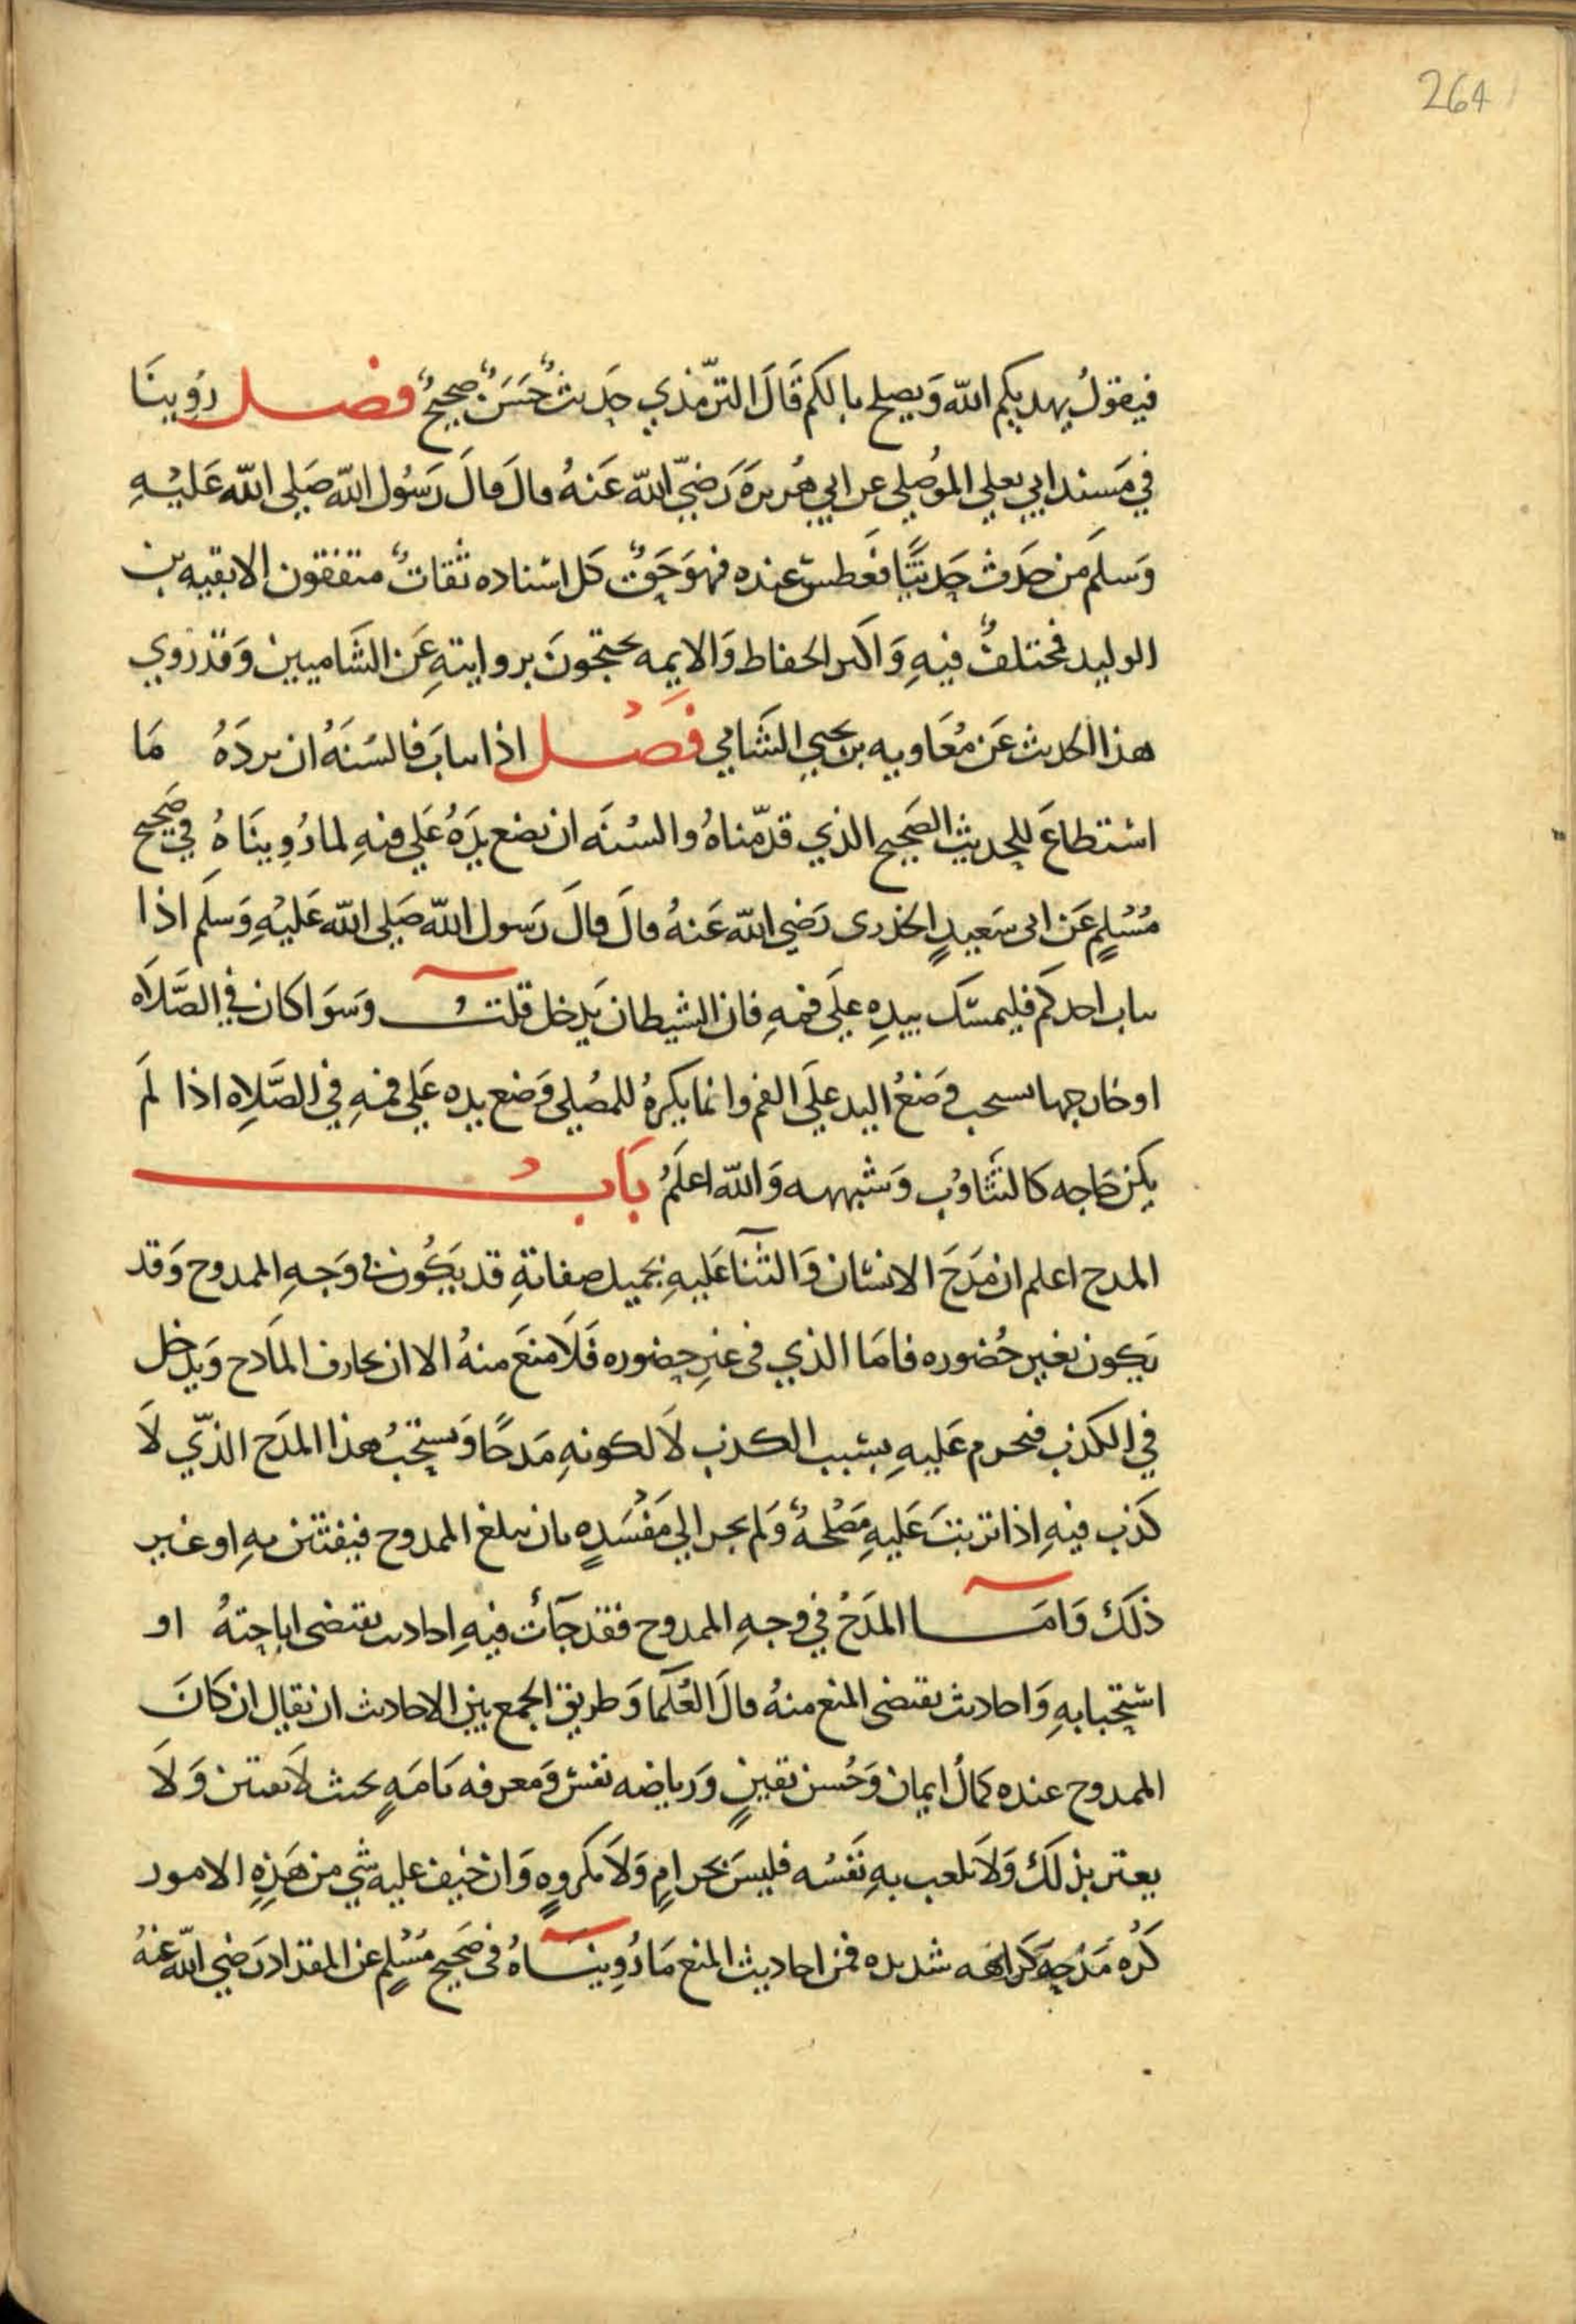 264
فيقولُ يهديكم الله وَيصلح بالكم قَالَ الترّمذي حَديثٌ حَسَنٌ صحيحٌ فصل رُوينَا
في مَسند ابي يعلي الموُصِلي عن ابي هُريرَةَ رَضيَّ الله عَنهُ قالَ قالَ رَسُول الله صَلي الله عَليْهِ
وَسلمَ من حَدَث حَديثًا فعَطسَ عنده فهوَ حَقٌ كَل اسْناده ثقاتٌ متفقون الا بقيه بن
الوليد فمختلفٌ فيهِ وَاكثر الحفاظ وَالايمه يحتجّونَ بروايتهِ عَن الشَاميين وَقد رُوي
هذا الحديث عَن مُعَاويه بن يحيي الشَامي فَصْل اذا تثابَ فالسُنَهُ ان يردَهُ مَا
اسْتطاعَ للحديثِ الصَحيح الذي قدّمناهُ والسُنَه ان يضع يدَهُ عَلي فمهِ لما رُوِينَاهُ في صَحيح
مُسْلِمٍ عَن ابى سَعيدٍ الخدرى رَضي الله عَنهُ قالَ قالَ رَسول الله صَلى الله عَليْهِ وَسلمَ اذا
تثاب احدكم فليمسَك بيدِهِ علَي فمهِ فان الشيطان يَدخل قلتُ وسَوَا كان في الصَّلَاه
او خارجها يستحب وَضعُ اليد علَي الفم وانما يكرهُ للمصُلي وَضع يده عَلي فمهِ في الصَّلاهِ اذا لمَ
يكن حَاجه كالتَثَاوُب وَشبهه وَالله اعلَمُ بَابُ
المدح اعلم ان مَدحَ الانسَان وَالثنآ عَليهِ بجميل صفاتهِ قد يَكُون في وَجهِ الممدوح وَقد
يَكون بغير حُضوره فامَا الذي في غيرِ حضوره فَلَا منعَ منهُ الا ان يجازف المَادح وَيدخل
في الكذب فيحرم عَليهِ بسَبب الكذب لَا لكونهِ مَدحًا وَيستحَبُ هذا المدَح الذّي لَا
كَذب فيهِ اذا ترتبَ عَليهِ مَصْلحهٌ وَلم يجر الي مَفسَدهٍ بان يبلغ الممدوح فيفتتن بهِ او غير
ذلَك وَامَا المدَحُ في وجهِ الممدوح فقد جَآت فيهِ احاديث تقتضى اباحتهُ او
اسْتحبابهِ وَاحاديث تقتضى المنع منهُ قالَ العُلمَا وَطريق الجمع بين الاحاديث ان يقال ان كانَ
الممدوح عنده كمالُ ايمان وَحُسن يقينٍ وَرياضه نفس وَمعرفه تامَهٍ بحيث لَا يفتتن وَلَا
يغتر بذلَك وَلَا تلعب بهِ نَفسُه فليسَ بحرامٍ وَلَا مكروهٍ وَان خيف عليه شي من هَذِهِ الامور
كُرِه مَدْحِه كَراهه شديده فمن احاديث المنع مَا رُوِينَاهُ في صَحيح مُسْلِم عن المقداد رَضي الله عنهُ